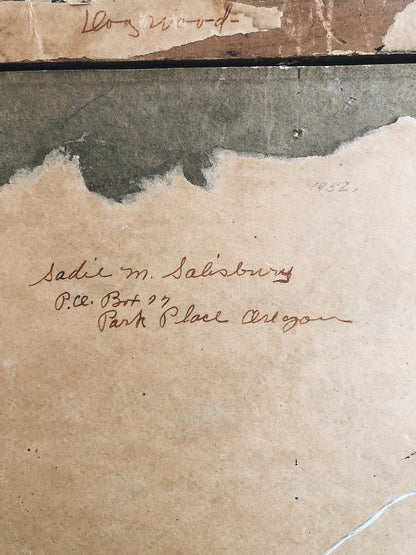 Dogwood-
1952.
Sadie M. Salisbury
P.O. Box 97
Park Place Oregon